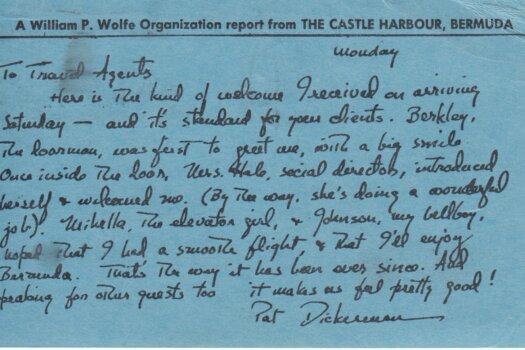 A William P. Wolfe Organization report from THE CASTLE HARBOUR, BERMUDA
Monday
To Travel Agents
Here is the kind of welcome I received on arriving
Saturday — and it's standard for your clients. Berkley,
the doorman, was first to greet me, with a big smile.
Once inside the door, Mrs. Hale, social director, introduced
herself & welcomed me. (By the way, she's doing a wonderful
job)! the elevator girl, & Johnson, my bellboy,
hoped that I had a smooth flight, & that I'd enjoy
Bermuda. That's the way it has been ever since. And
speaking for other guests too it makes us feel pretty good!
Pat Dickerman